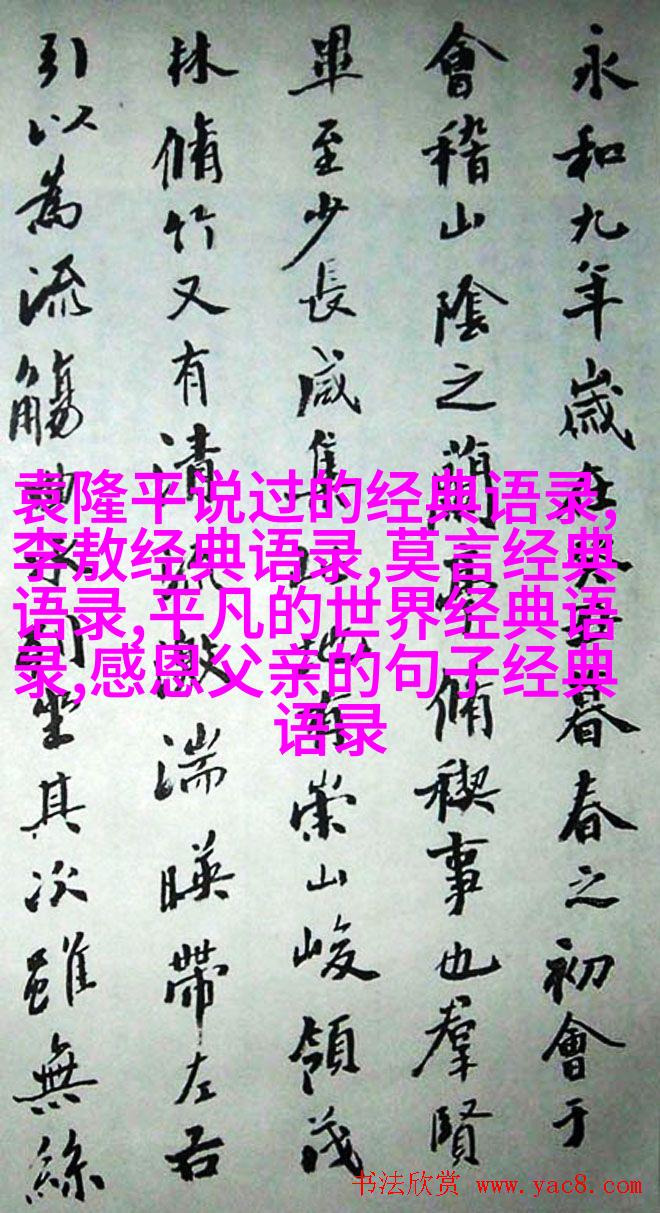 永和九年歲在癸丑暮春之初會于
會稽山陰之蘭亭脩稧事也羣賢
畢至少長咸集此地有崇山峻領茂
林脩竹又有清流激湍暎帶左右
引以為流觴曲水列坐其次雖無絲
袁隆平说过的经典语录,
李敖经典语录,莫言经典
语录,平凡的世界经典语
录,感恩父亲的句子经典
语录
书法欣赏 www.yac8.com